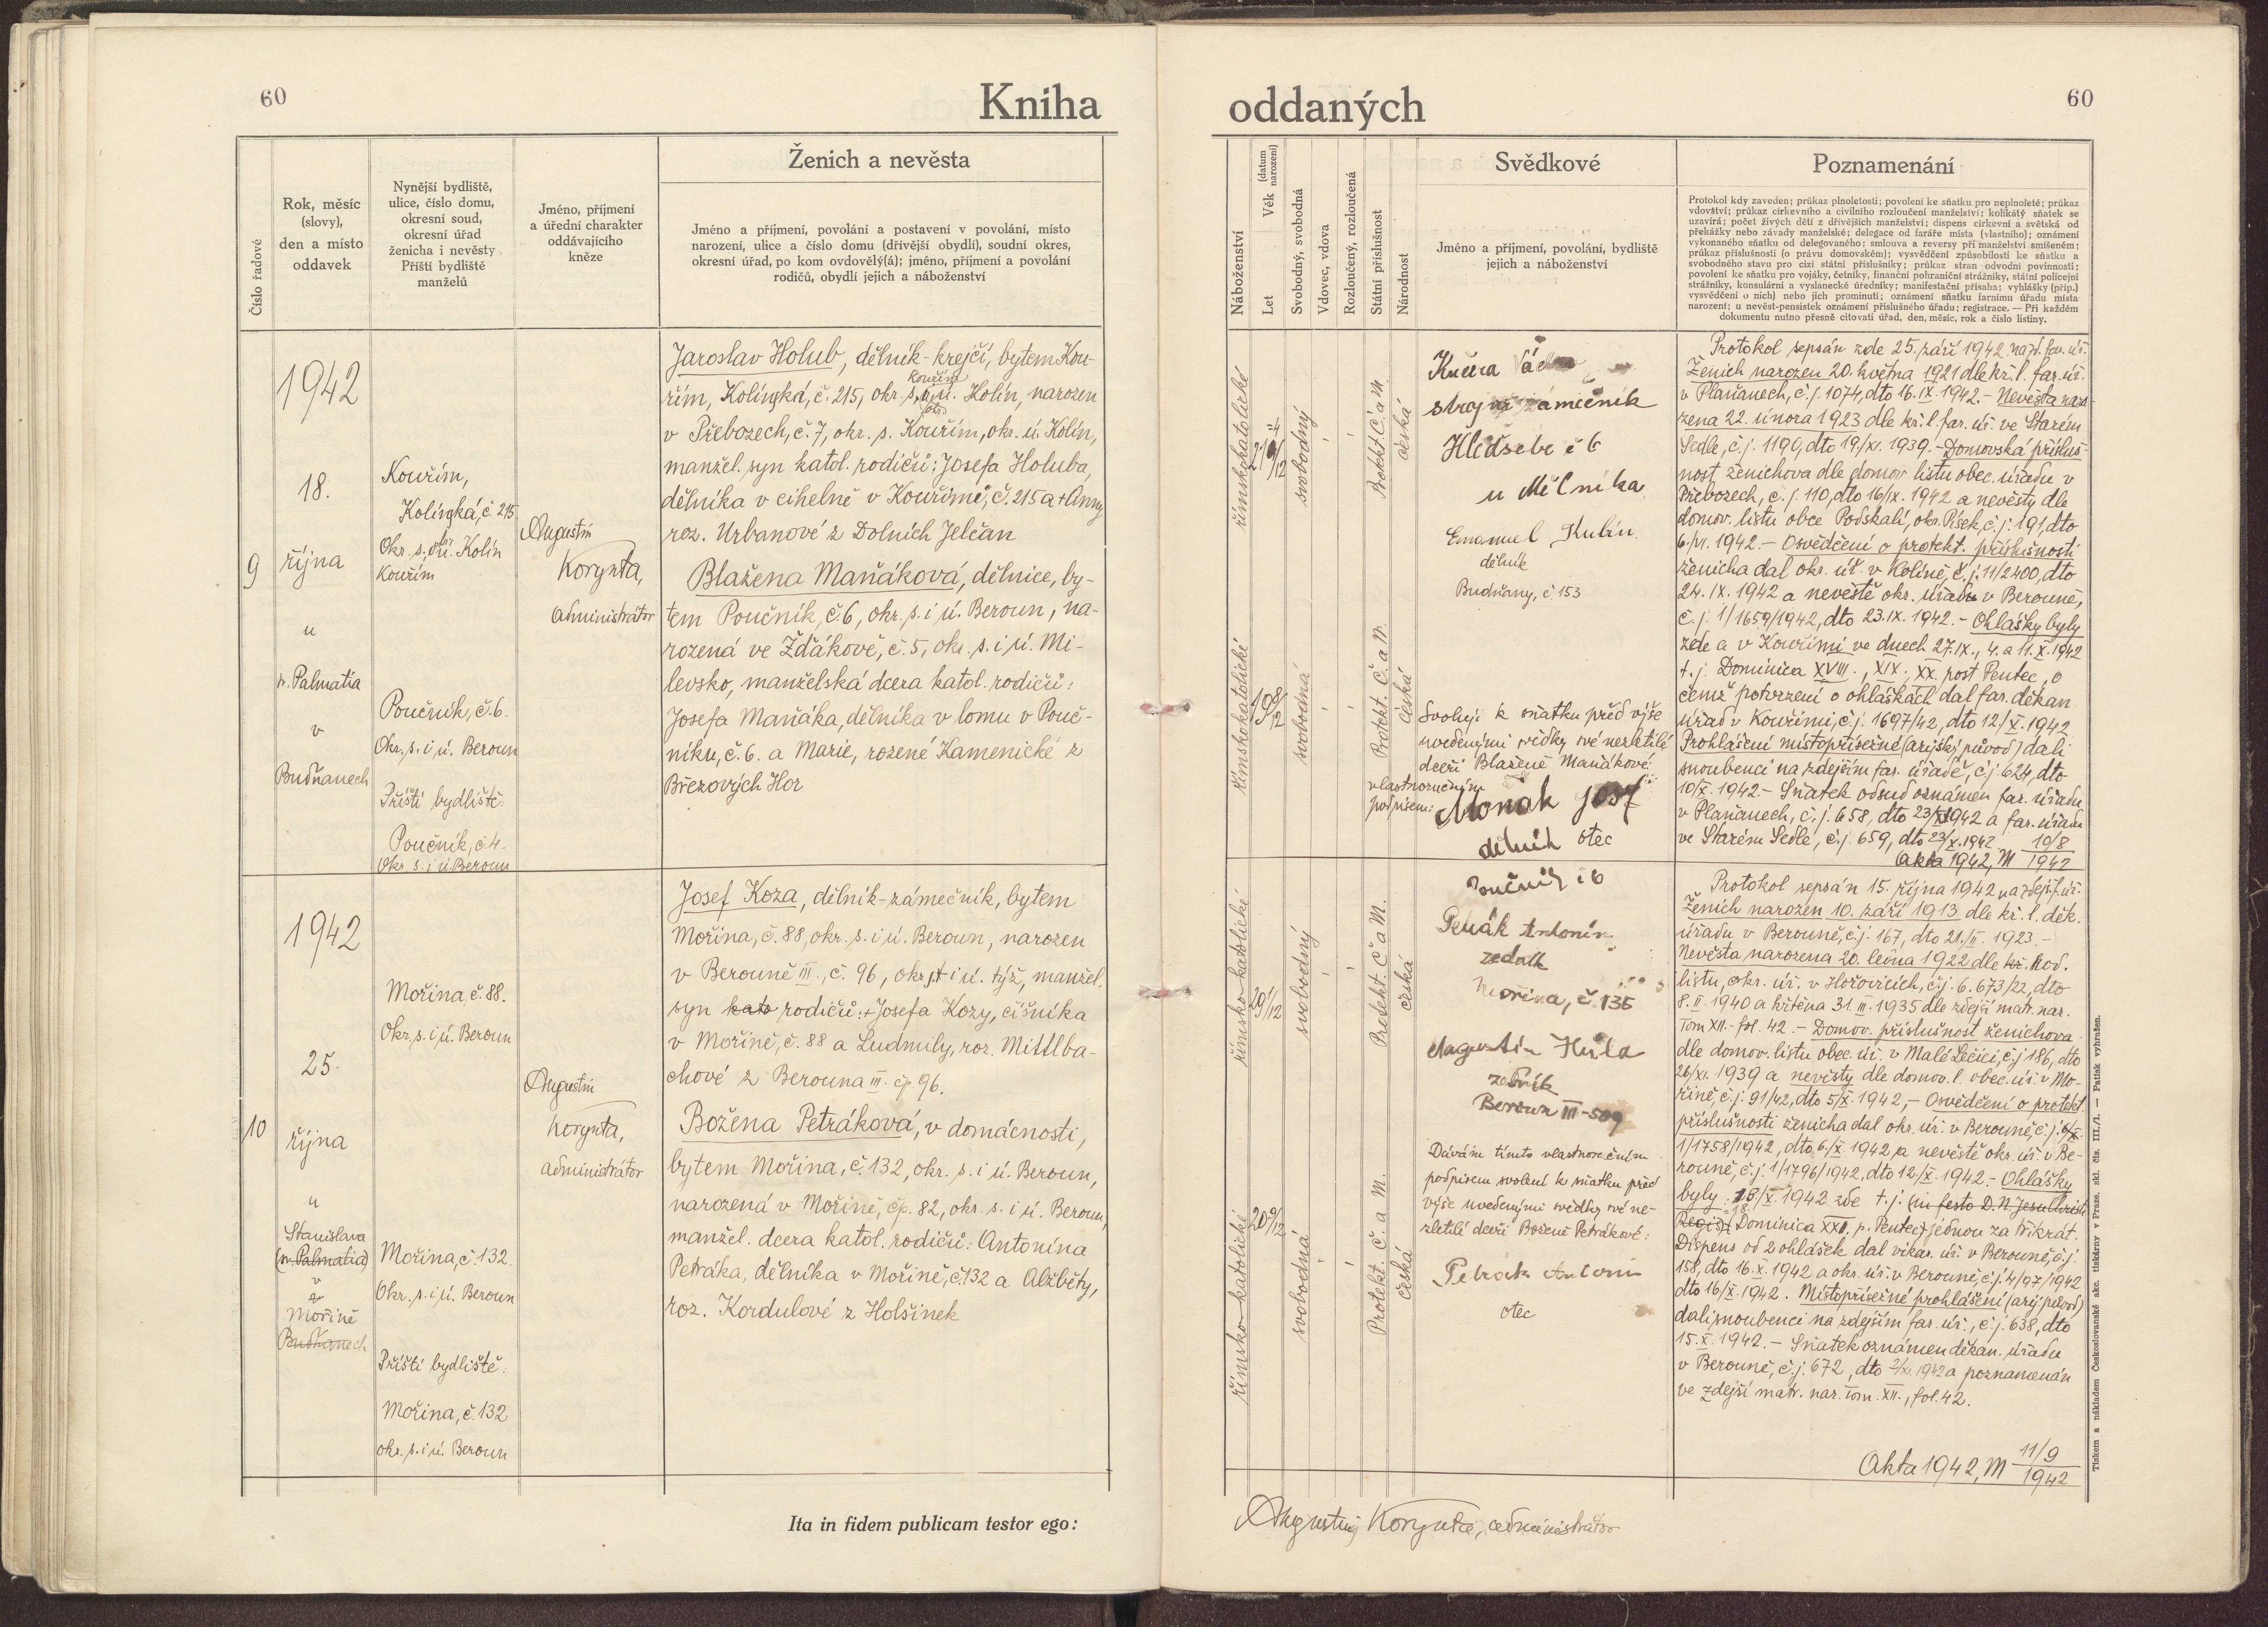 60
Kniha
Číslo řadové
Rok, měsíc
(slovy),
den a místo
oddavek
Nynější bydliště,
ulice, číslo domu,
okresní soud,
okresní úřad
ženicha i nevěsty
Příští bydliště
manželů
Jméno, příjmení
a úřední charakter
oddávajícího
kněze
Ženich a nevěsta
Jméno a příjmení, povolání a postavení v povolání, místo
narození, ulice a číslo domu (dřívější obydlí), soudní okres,
okresní úřad, po kom ovdovělý(á); jméno, příjmení a povolání
rodičů, obydlí jejich a náboženství
9
1942
18.
října
u
p. Palmatia
v
Budňanech
Kouřim,
Kolínská, č. 215
Okr. s. úř. Kolín
Kouřim
Poučník, č. 6.
Okr. s. i ú. Beroun
Příští bydliště:
Poučník, č. 4.
Okr. s. i ú. Beroun
Augustin
Korynta,
administrátor
Jaroslav Holub, dělník-krejčí, bytem Kou-
řim, Kolínská, č. 215, okr. s. Kouřim ú. Kolín, narozen
v Přebozech, č. 7, okr. s. Kouřim, okr. ú. Kolín,
manžel. syn katol. rodičů: Josefa Holuba,
dělníka v cihelně v Kouřimi, č. 215 a + Anny
roz. Urbanové z Dolních Jelčan
Blažena Maňáková, dělnice, by-
tem Poučník, č. 6, okr. s. i ú. Beroun, na-
rozená ve Žďákově, č. 5, okr. s. i ú. Mi-
levsko, manželská dcera katol. rodičů:
Josefa Maňáka, dělníka v lomu v Pouč-
níku, č. 6. a Marie, rozené Kamenické z
Březových Hor
10
1942
25.
října
u
Stanislava
(p. Palmatia)
v
Mořině
Budňanech
Mořina, č. 88.
Okr. s. i ú. Beroun
Mořina, č. 132.
Okr. s. i ú. Beroun
Příští bydliště:
Mořina, č. 132
okr. s. i ú. Beroun
Augustin
Korynta,
administrátor
Josef Koza, dělník-zámečník, bytem
Mořina, č. 88, okr. s. i ú. Beroun, narozen
v Berouně III., č. 96, okr. s. i ú. týž, manžel.
syn kato rodičů: + Josefa Kozy, číšníka
v Mořině, č. 88 a Ludmily, roz. Mittlba-
chové z Berouna III. čp. 96.
Božena Petráková, v domácnosti,
bytem Mořina, č. 132, okr. s. i ú. Beroun,
narozená v Mořině, čp. 82, okr. s. i ú. Beroun,
manžel. dcera katol. rodičů: Antonína
Petráka, dělníka v Mořině, č. 132 a Alžběty,
roz. Kordulové z Holšinek
Ita in fidem publicam testor ego:
oddaných
60
Náboženství
Let Věk (datum narození)
Svobodný, svobodná
Vdovec, vdova
Rozloučený, rozloučená
Státní příslušnost
Národnost
Svědkové
Jméno a příjmení, povolání, bydliště
jejich a náboženství
Poznamenání
Protokol kdy zaveden; průkaz plnoletosti; povolení ke sňatku pro neplnoleté; průkaz
vdovství; průkaz církevního a civilního rozloučení manželství; kolikátý sňatek se
uzavírá; počet živých dětí z dřívějších manželství; dispens církevní a světská od
překážky nebo závady manželské; delegace od faráře místa (vlastního); oznámení
vykonaného sňatku od delegovaného; smlouva a reversy při manželství smíšeném;
průkaz příslušnosti (o právu domovském); vysvědčení způsobilosti ke sňatku a
svobodného stavu pro cizí státní příslušníky; průkaz stran odvodní povinnosti;
povolení ke sňatku pro vojáky, četníky, finanční pohraniční strážníky, státní policejní
strážníky, konsulární a vyslanecké úředníky; manifestační přísaha; vyhlášky (příp.)
vysvědčení o nich) nebo jich prominutí; oznámení sňatku farnímu úřadu místa
narození; u nevěst-pensistek oznámení příslušného úřadu; registrace. — Při každém
dokumentu nutno přesně citovati úřad, den, měsíc, rok a číslo listiny.
římskokatolické
svobodný
Protekt. Č. a M.
česká
římskokatolické
19 8/12
svobodná
Protekt. Č. a M.
česká
Kučera
strojní zámečník
Hledsebe č 6
u Mělníka
Emanuel Kubín
dělník
Budňany, č 153
Svoluji k sňatku před výše
uvedenými svědky své nezletilé
dceři Blaženě Maňákové
vlastnoručním
podpisem:
dělník otec
Poučník č 6
Protokol sepsán zde 25. září 1942 na zd. far. úř.
Ženich narozen 20. května 1921 dle kř. l. far. úř.
v Plaňanech, č. j. 1074, dto 16. IX. 1942. - Nevěsta naro-
zena 22. února 1923 dle kř. l. far. úř. ve Starém
Sedle, č. j. 1190, dto 19./XI. 1939. - Domovská přísluš-
nost ženichova dle domov. listu obec. úřadu v
Přebozech, č. j. 110, dto 16/IX. 1942 a nevěsty dle
domov. listu obce Podskalí, okr. Písek, č. j. 191, dto
6./VI. 1942. - Osvědčení o protekt. příslušnosti
ženicha dal okr. úř. v Kolíně, č. j. 11/2400, dto
24. IX. 1942 a nevěstě okr. úřad v Berouně,
č. j. 1/1659/1942, dto 23. IX. 1942. - Ohlášky byly
zde a v Kouřimi ve dnech 27. IX., 4. a 11. X. 1942
t. j. Dominica XVIII., XIX., XX. post Pentec., o
čemž potvrzení o ohláškách dal far. děkan
úřad v Kouřimi, č. j. 1697/42, dto 12./X. 1942
Prohlášení místopřísežné (arijský původ) dali
snoubenci na zdejším far. úřadě, č. j. 624, dto
10/X. 1942. - Sňatek odsud oznámen far. úřadu
v Plaňanech, č. j. 658, dto 23/X 1942 a far. úřadu
ve Starém Sedle, č. j. 659, dto 23/X. 1942
Akta 1942, M 10/8 1942
římsko-katolické
29 1/12
svobodný
Protekt. Č a M.
česká
římsko-katolické
20 9/12
svobodná
Protekt. Č. a M.
česká
Petrák Antonín
Mořina, č. 135
Augustin
Beroun III-509
Dávám tímto vlastnoručním
podpisem svolení k sňatku před
výše uvedenými svědky své ne-
zletilé dceři Boženě Petrákové:
Petrák Antonín
otec
Protokol sepsán 15. října 1942 na zdejš. f. úř.
Ženich narozen 10. září 1913 dle kř. l. děk.
úřadu v Berouně, č. j. 167, dto 21./II. 1923. -
Nevěsta narozena 20. ledna 1922 dle kř. Rod.
listu, okr. úř. v Hořovicích, č. j. 6.673/22, dto
8. II. 1940 a křtěna 31. III. 1935 dle zdejší matr. nar.
Tom XII. - fol. 42. - Domov. příslušnost ženichova
dle domov. listu obec. úř. v Malé Lečici, č. j. 186, dto
26/XI. 1939 a nevěsty dle domov. l. obec. úř. v Mo-
řině, č. j. 91/42, dto 5/X. 1942, - Osvědčení o protekt.
příslušnosti ženicha dal okr. úř. v Berouně, č. j. 6/X.
1/1758/1942, dto 6./X. 1942 a nevěstě okr. úř. v Be-
rouně, č. j. 1/1796/1942, dto 12./X. 1942. - Ohlášky
byly 18/X. 1942 zde t. j. (in festo D. N. Jesu Christi
Regis) (Dominica XXI. p. Pentec) jednou za třikrát.
Dispens od 2 ohlášek dal vikar. úř. v Berouně, č. j.
158, dto 16. X. 1942 a okr. úř. v Berouně, č. j. 4/97/1942
dto 16/X. 1942. Místopřísežné prohlášení (arij. původ)
dali snoubenci na zdejším far. úř., č. j. 638, dto
15. X. 1942. - Sňatek oznámen děkan. úřadu
v Berouně, č. j. 672, dto 2/XI. 1942 a poznamenán
ve zdejší matr. nar. Tom. XII., fol. 42.
Akta 1942, M 11/9 1942
Augustin Korynta, administrátor
Tiskem a nákladem Československé akc. tiskárny v Praze. skl. čís. III./1. — Patisk vyhražen.